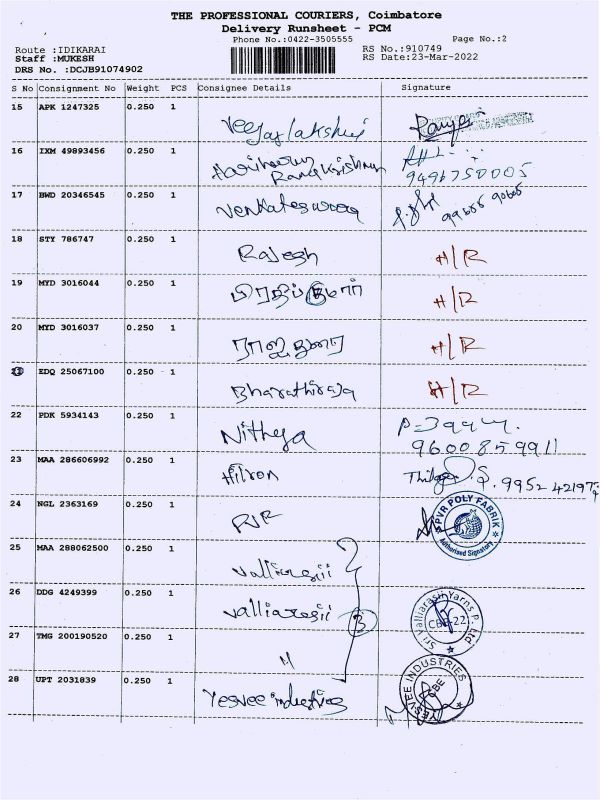 THE PROFESSIONAL COURIERS, Coimbatore
Delivery Runsheet - PCM
Phone No.:0422-3505555
Page No.:2
Route :IDIKARAI
RS No.:910749
Staff :MUKESH
RS Date:23-Mar-2022
DRS No. :DCJB91074902
S No Consignment No Weight PCS Consignee Details Signature
15 APK 1247325 0.250 1
Veejaylakshmi
16 IXM 49893456 0.250 1
Hariharan
Ramakrishnan
9496750005
17 BWD 20346545 0.250 1
Venkateswaraa
18 STY 786747 0.250 1
Rajesh H/R
19 MYD 3016044 0.250 1
H/R
20 MYD 3016037 0.250 1
H/R
EDQ 25067100 0.250 1
Bharathiraja H/R
22 PDK 5934143 0.250 1
Nithya
9600859911
23 MAA 286606992 0.250 1
Hilron
9952 42197
24 NGL 2363169 0.250 1
PVR POLY FABRIK
Authorised Signatory
25 MAA 288062500 0.250 1
Valliarasii
26 DDG 4249399 0.250 1
Valliarasii 3
Sri Valliarasi Yarns P Ltd
CBE-22.
27 TMG 200190520 0.250 1
"
28 UPT 2031839 0.250 1
Yesvee industries
YESVEE INDUSTRIES
CBE